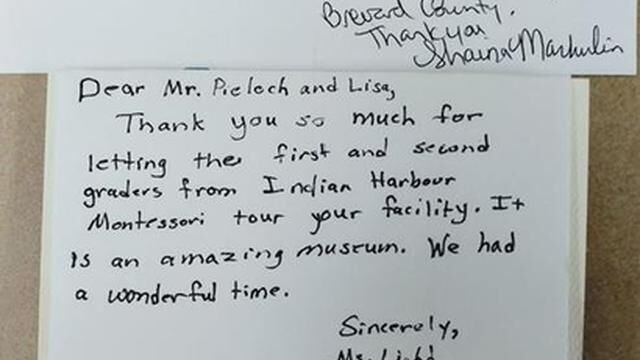 Brevard County.
Thank you
Dear Mr. Pieloch and Lisa,
Thank you so much for
letting the first and second
graders from Indian Harbour
Montessori tour your facility. It
is an amazing museum. We had
a wonderful time.
Sincerely,